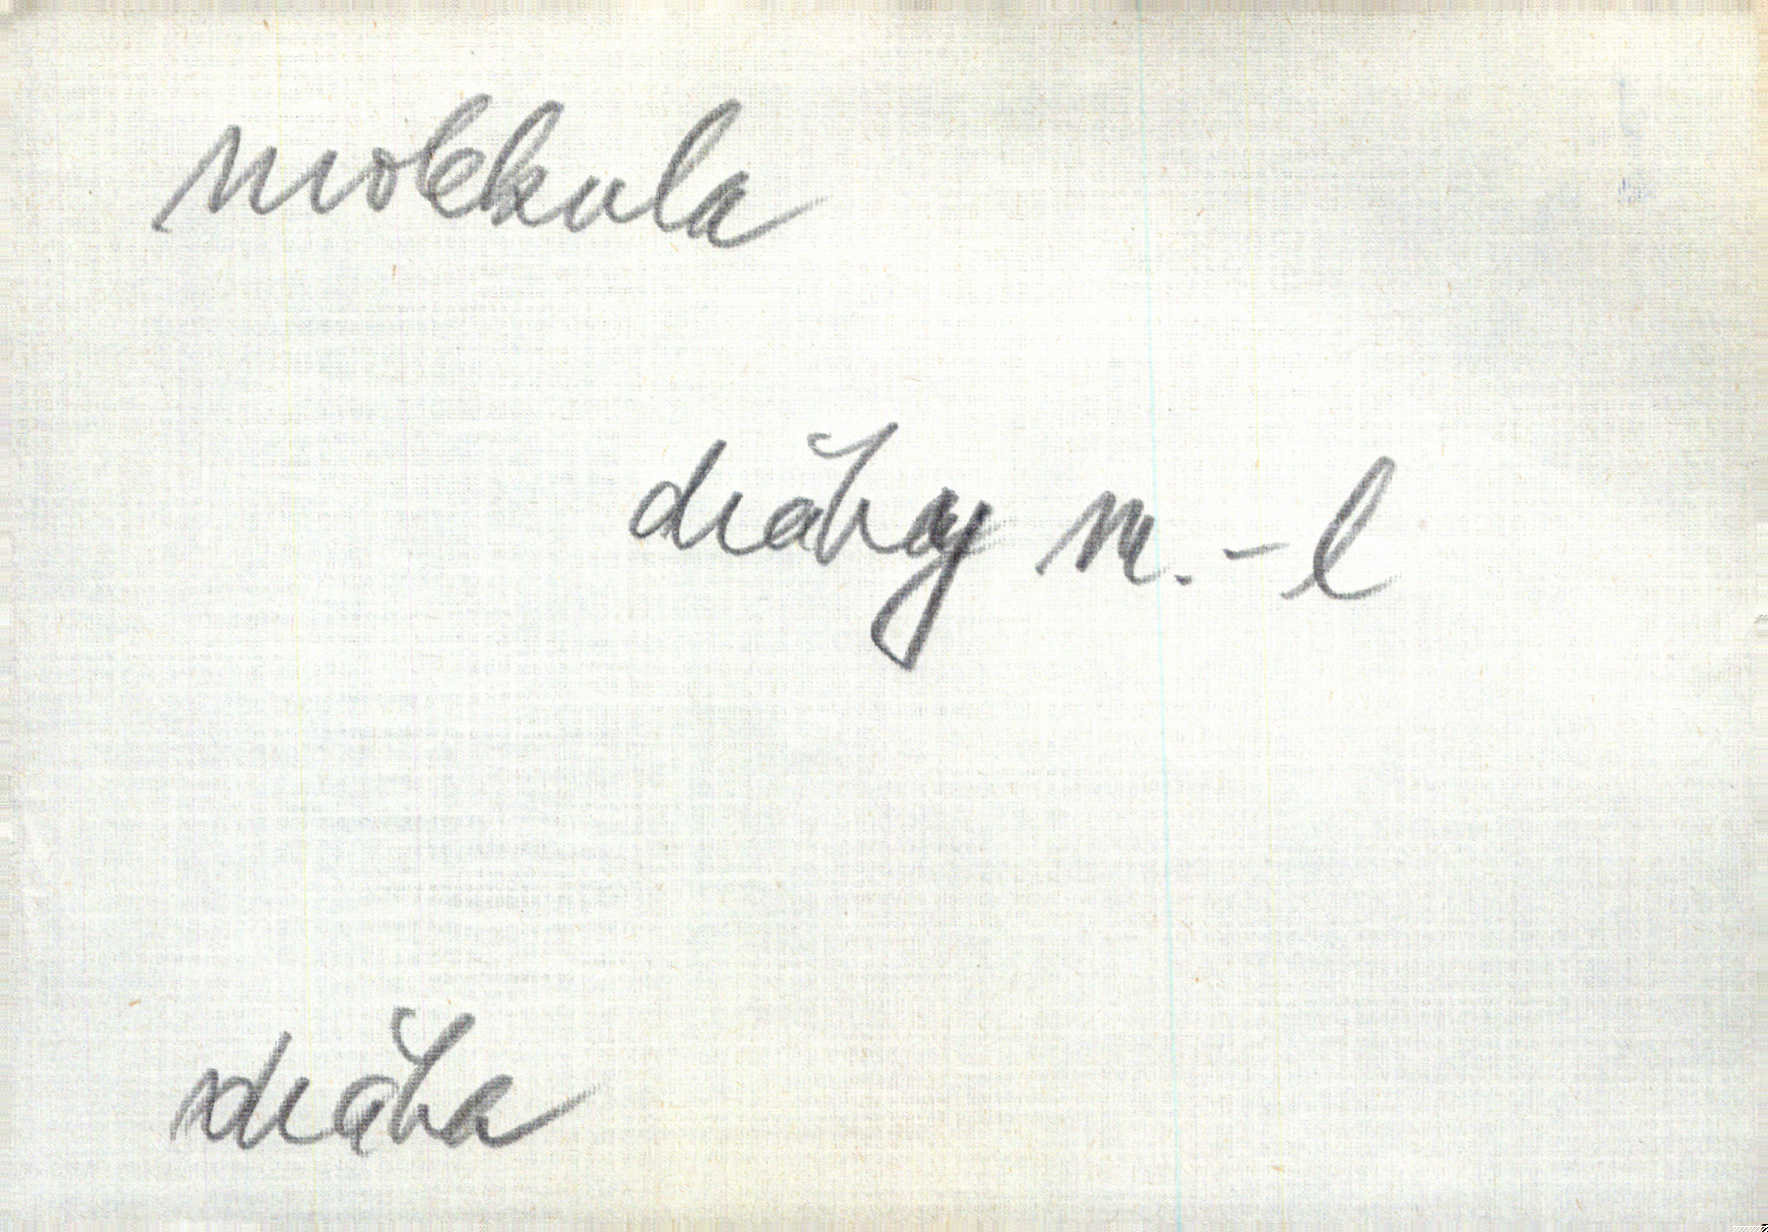 molekula
dráhy m. - l
dráha